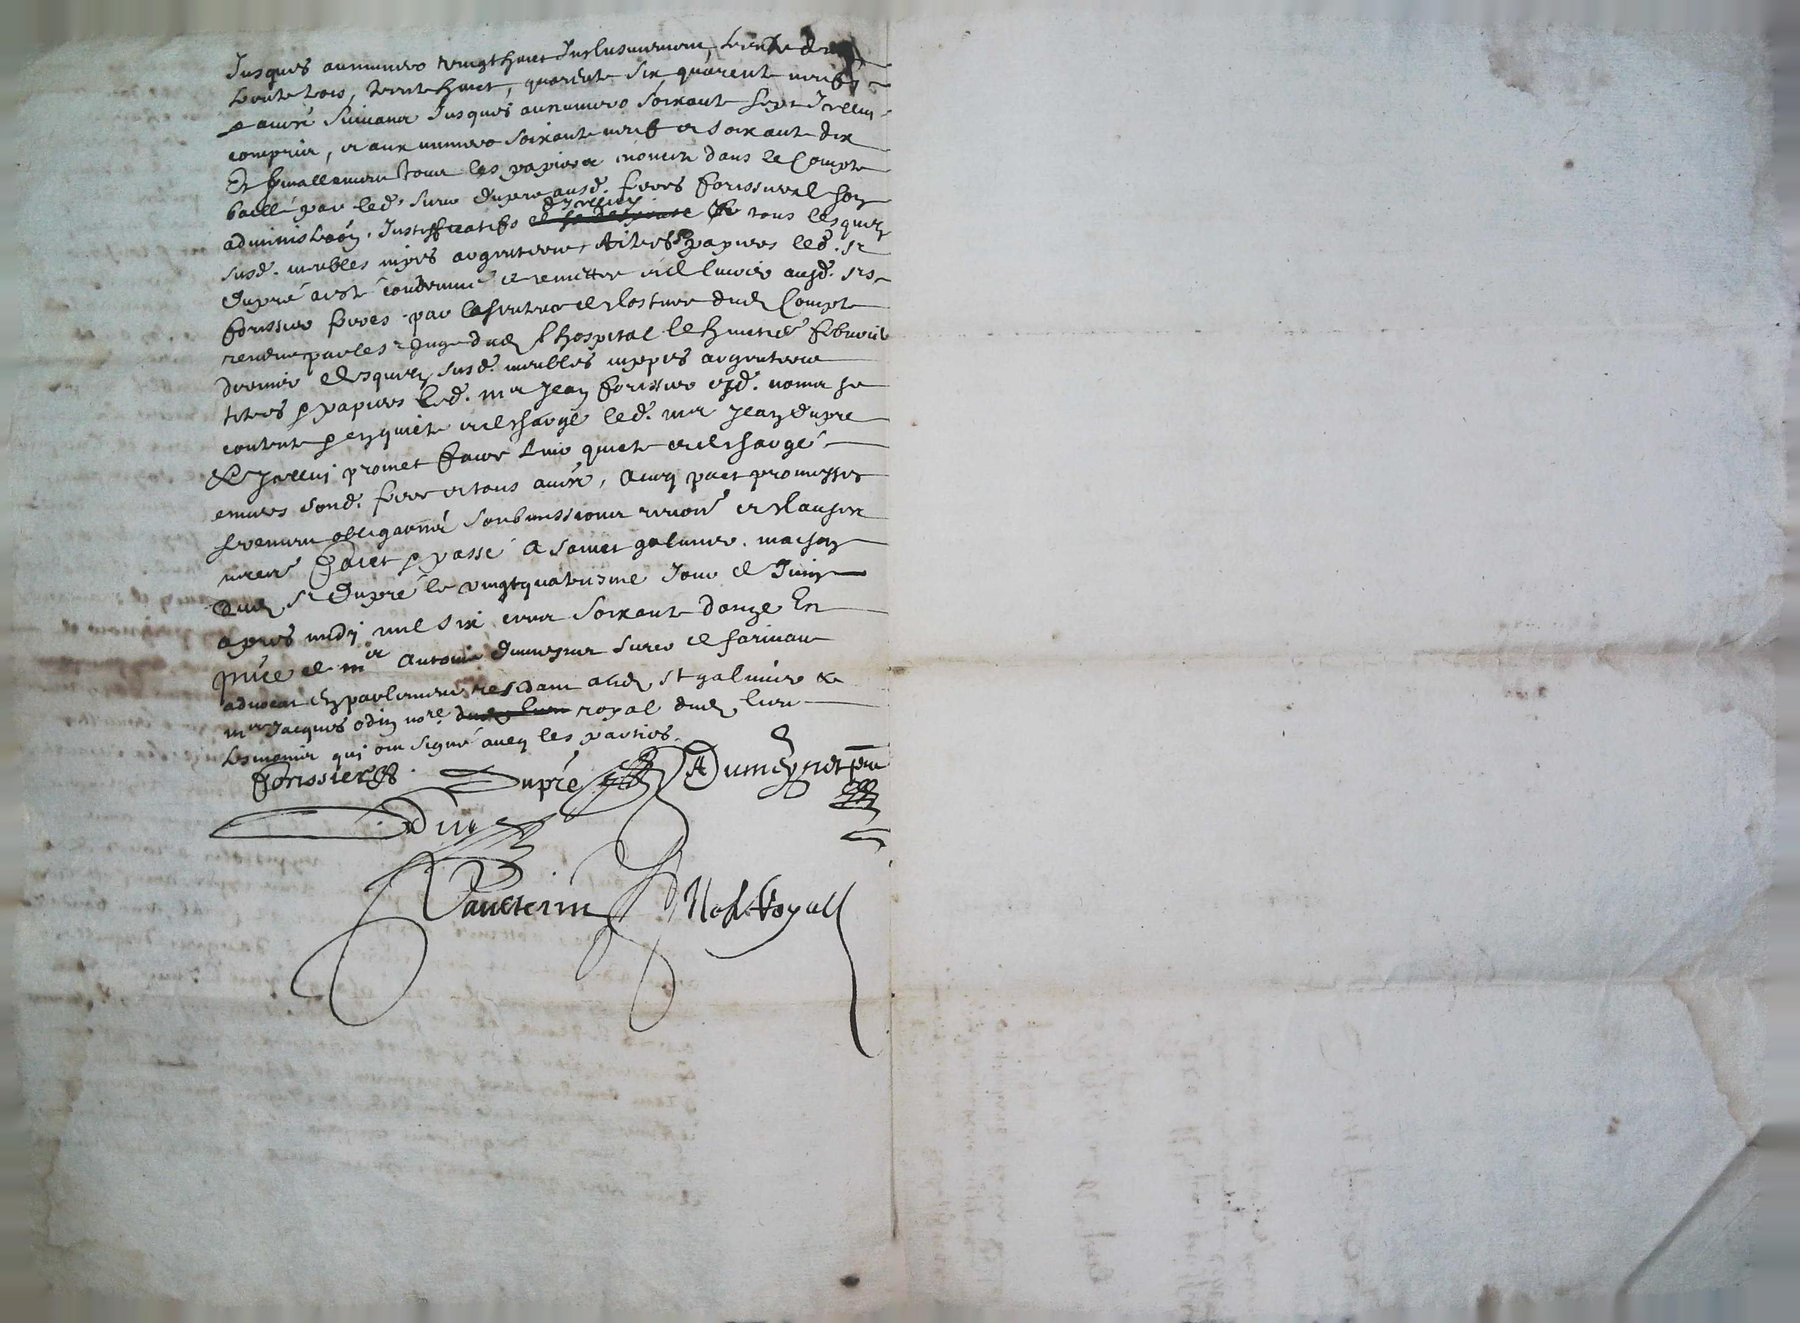 Jusques au numero vingt huict Inclusivement, trente deux
trente trois, trente huict, quarente six quarente neuf,
& autre suivans Jusques au numero soixante sept Icelluy
compris, et aux numero soixante neuf et soixante dix
Et finallement tous les papiers enoncés dans le Compte
baillé par led. sieur Dupré ausd. freres forissier de son
administraon. Justifficatifs d'icelluy & tous lesquels
susd. meubles nipes argenterie, tiltres & papiers led. sr
Dupré a esté condemné de remettre et deslivrer ausd. srs
forissier freres par la sentence de closture dud. Compte
rendue par les Juge dud. l'hospital le huictie febvrier
dernier desquels susd. meubles nippes argenterie
titres & papiers led. mr Jean forissier esd. noms se
contente & en quicte et descharge led. mr Jean Dupre
& Icelluy promet faire tenir quicte et deschargé
envers sond. frere et tous autre, Avecq pact promesses
serement obligaonns soubmissions renonns et clauses
necere faict & passé A sainct galmier. maison
dud. sr Dupré le vingtquatriesme Jour de Juing
apres midy mil six cens soixante douze En
pnce de mre Antoine Dumeynet sieur de
advocat en parlement residant aud. st galmier &
mre Jacques Odin nore royal dud. lieu
tesmoins qui ont signé avecq les parties.
forissier
Dupré
ADumeynet pnt
Odin
Paneterin
Nore Royall